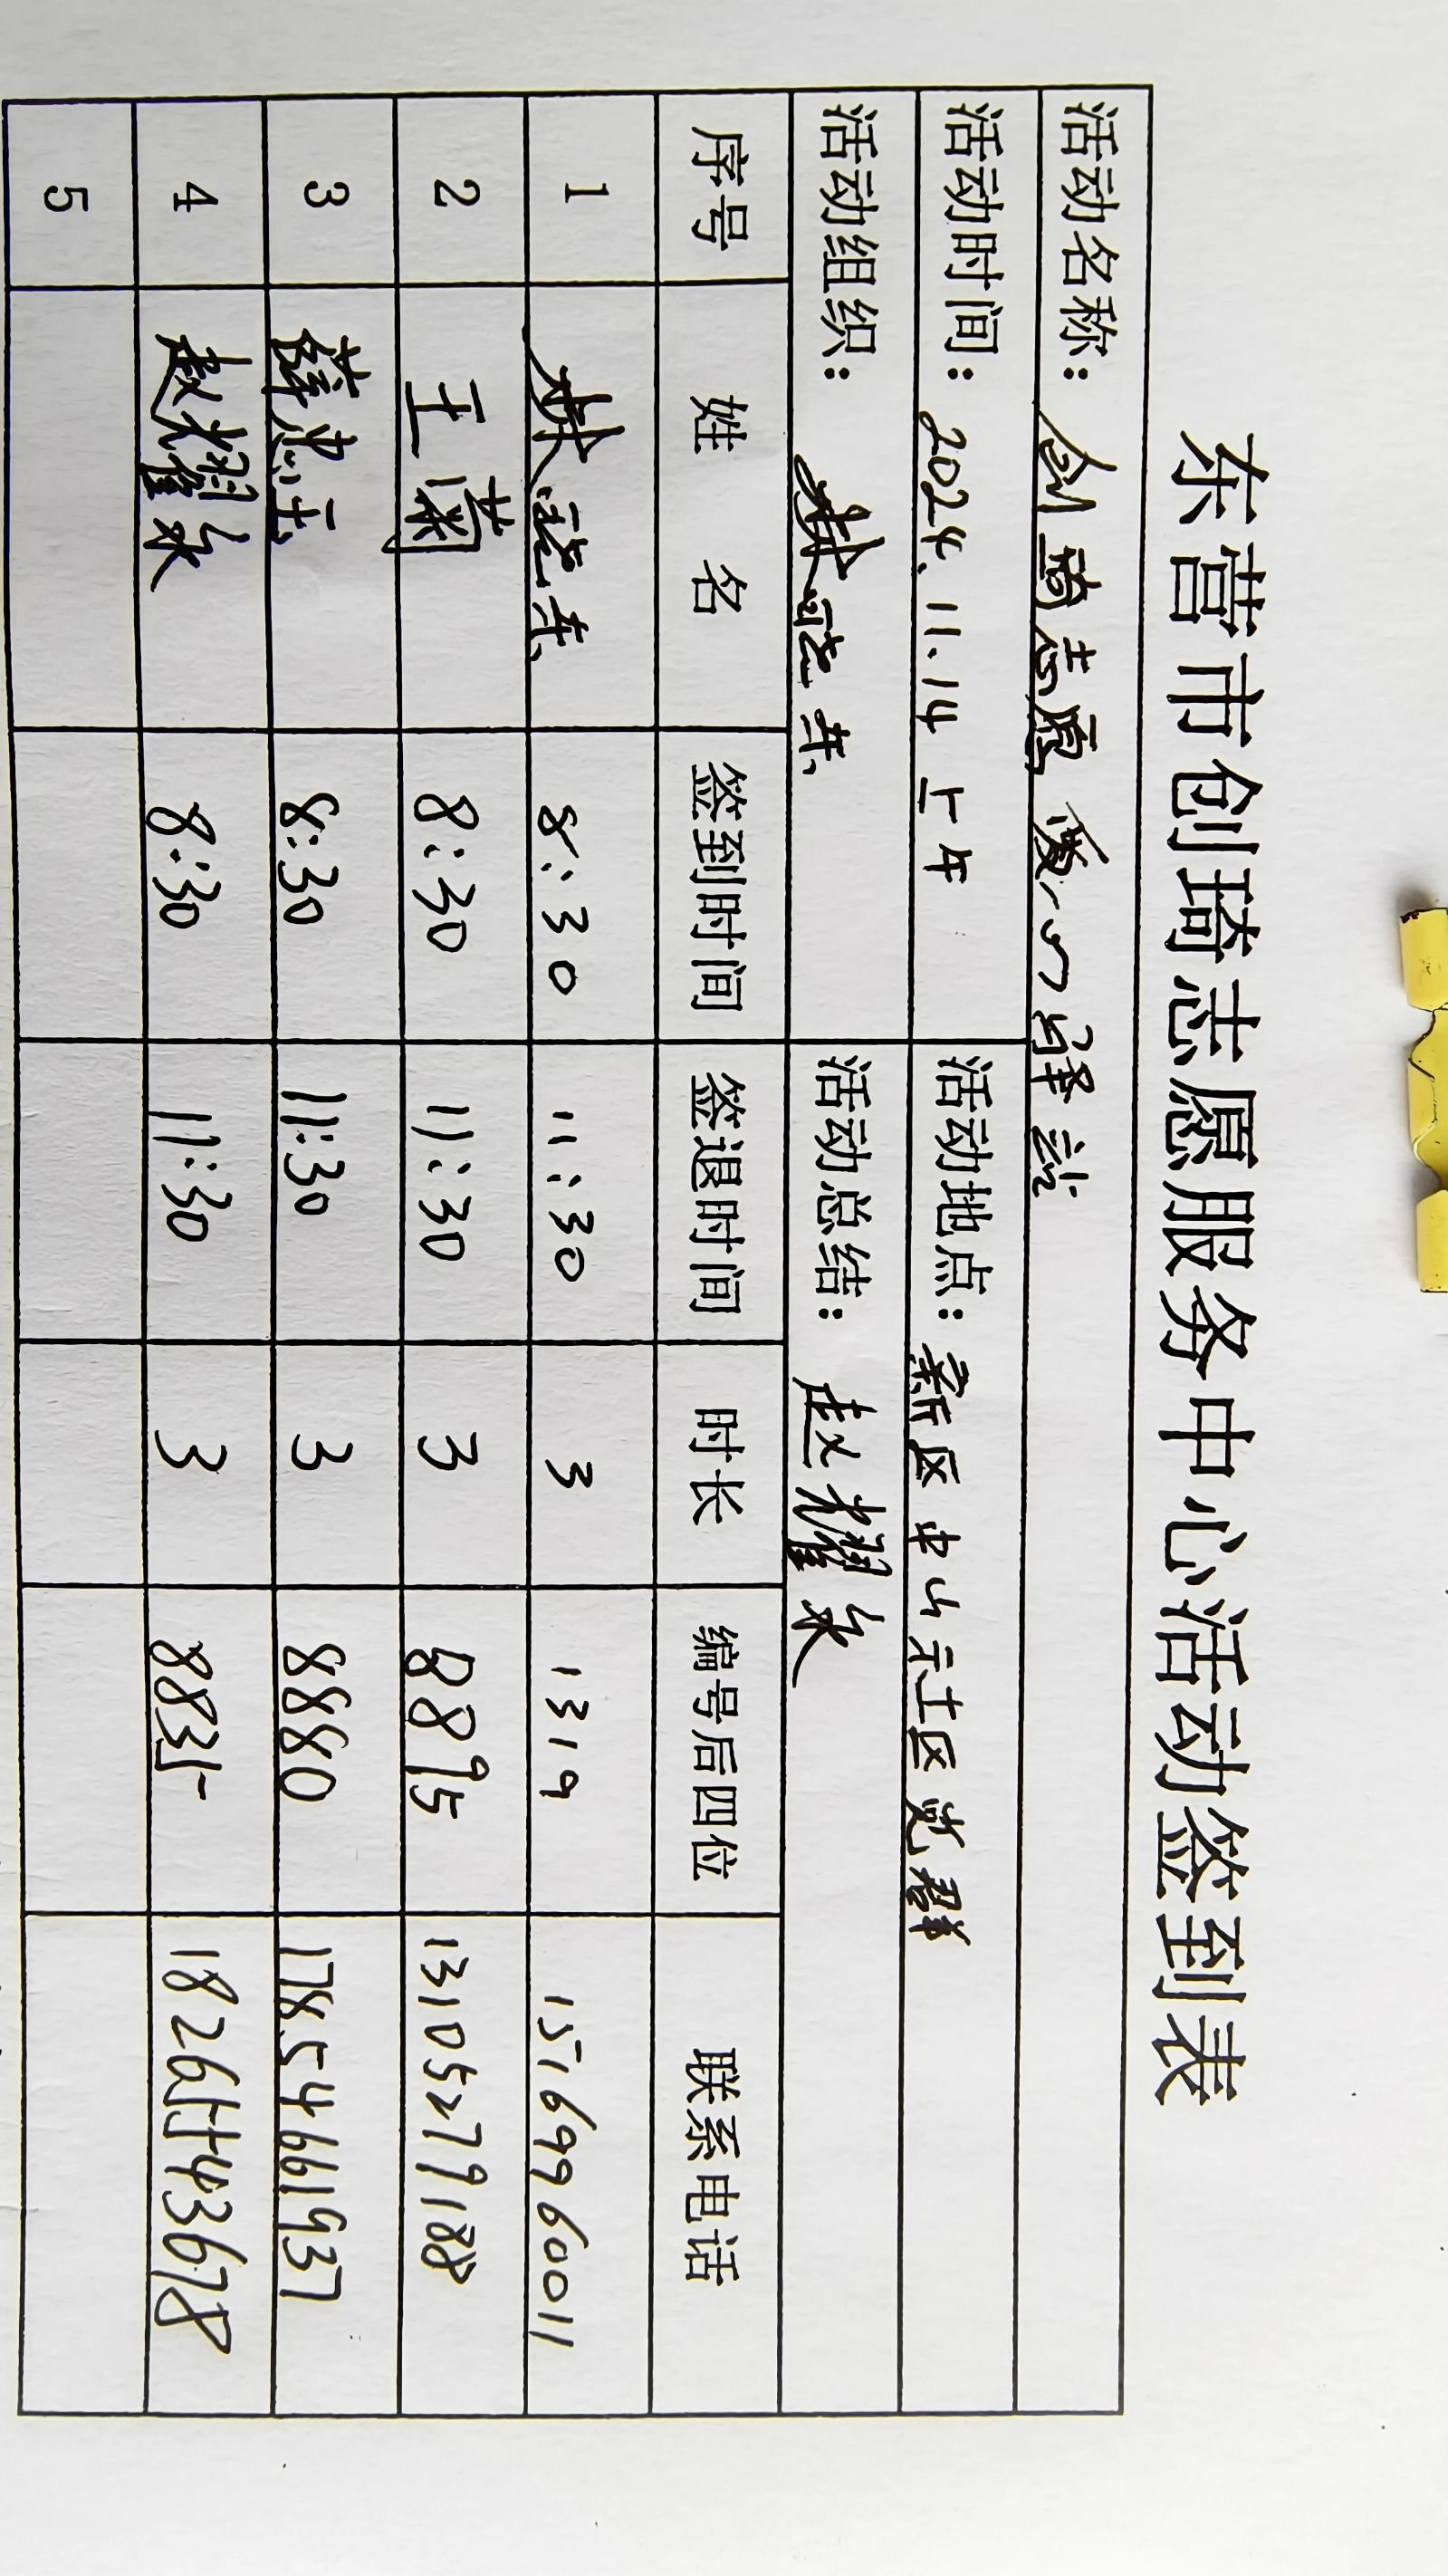 东营市创琦志愿服务中心活动签到表
活动名称：创琦志愿 爱心驿站
活动时间：2024.11.14 上午 活动地点：新区中山社区党群
活动组织：林晓东 活动总结：赵耀永
序号 姓 名 签到时间 签退时间 时长 编号后四位 联系电话
1 林晓东 8:30 11:30 3 1319 15169960011
2 王蘭 8:30 11:30 3 8895 13105279188
3 薛忠玉 8:30 11:30 3 8880 17854661937
4 赵耀永 8:30 11:30 3 8835 18265543678
5